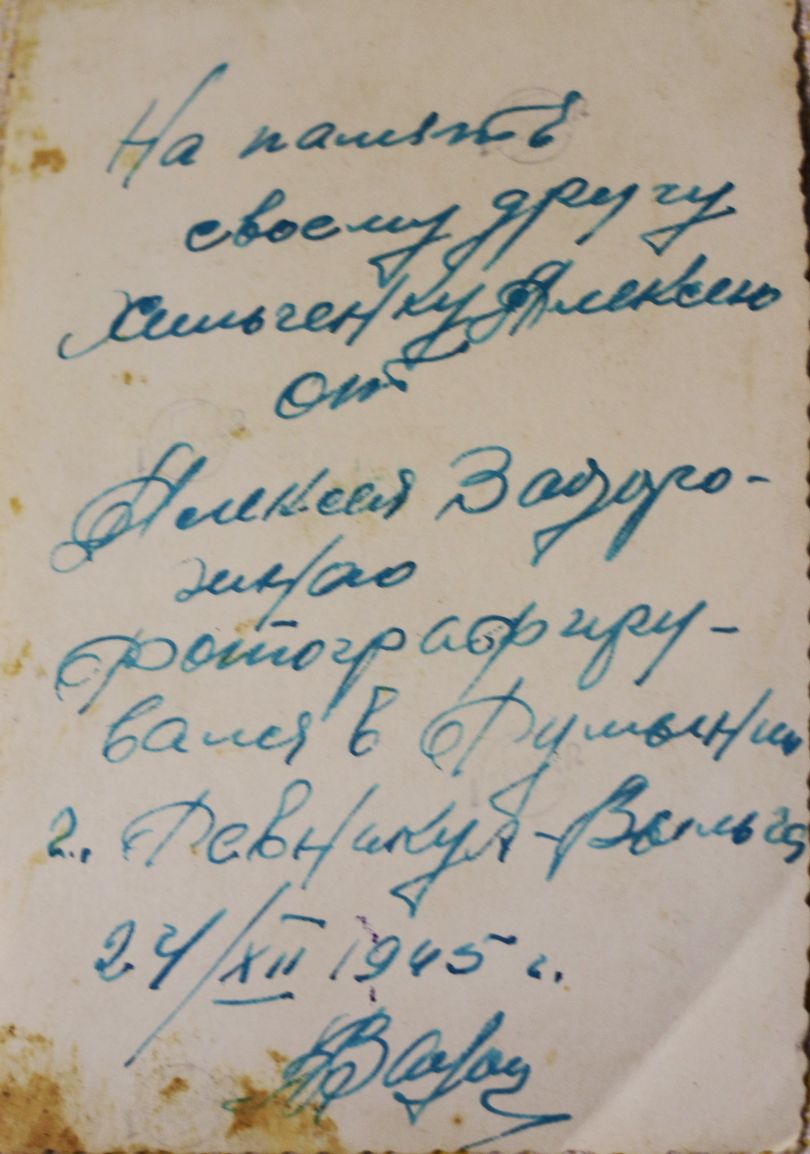 На память
своему другу
Хильченку Алексею
от
Алексея Задоро-
жнао
Фотографиру-
вался в Румынии
г.Ревникул-Выльча
24/XII 1945 г.